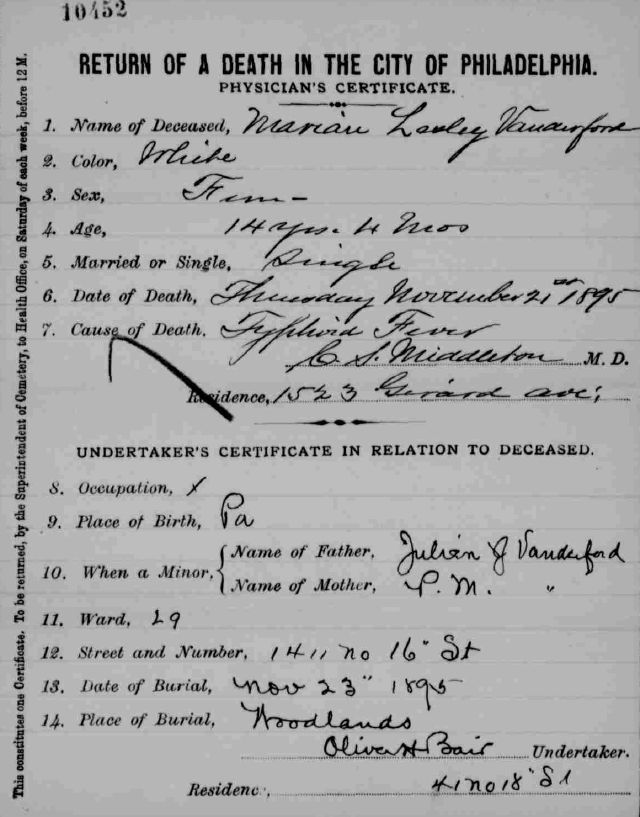 10452
RETURN OF A DEATH IN THE CITY OF PHILADELPHIA.
PHYSICIAN'S CERTIFICATE.
1. Name of Deceased, Marian Lesley Vanderford
2. Color, White
3. Sex, Fem-
4. Age, 14 yrs. 4 Mos
5. Married or Single, Single
6. Date of Death, Thursday November 21st 1895
7. Cause of Death, Typhoid Fever
C. S. Middleton M. D.
Residence, 1523 Girard ave;
UNDERTAKER'S CERTIFICATE IN RELATION TO DECEASED.
8. Occupation, X
9. Place of Birth, Pa
10. When a Minor, { Name of Father, Julian J Vanderford
Name of Mother, P. M. "
11. Ward, 29
12. Street and Number, 1411 no 16" St
13. Date of Burial, Nov 23" 1895
14. Place of Burial, Woodlands
Oliver H Bair Undertaker.
Residence, 41 no 18" St
This constitutes one Certificate. To be returned, by the Superintendent of Cemetery, to Health Office, on Saturday of each week, before 12 M.